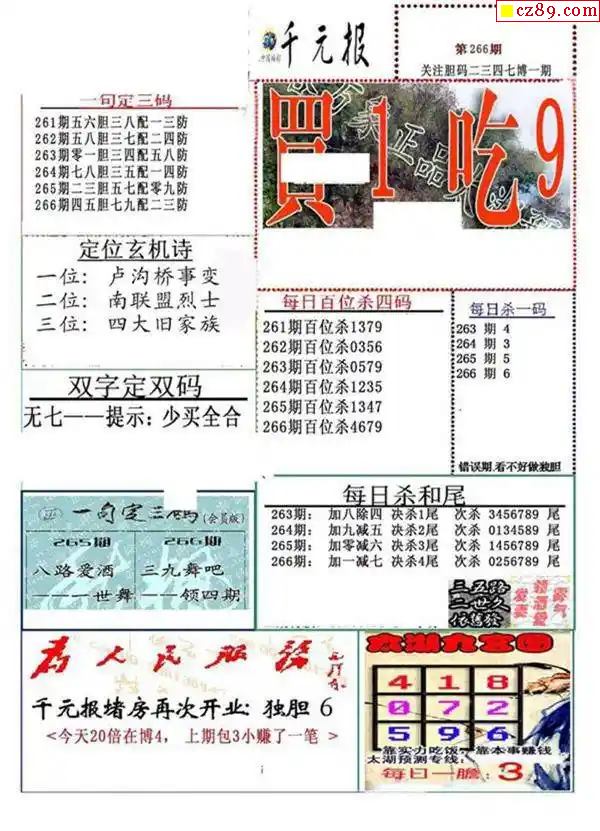 cz89.com
千元报
第266期
关注胆码二三四七博一期
一句定三码
261期五六胆三八配一三防
262期五八胆三七配二四防
263期零一胆三四配五八防
264期七八胆三五配一四防
265期二三胆五七配零九防
266期四五胆七九配二三防
買1吃9
定位玄机诗
一位: 卢沟桥事变
二位: 南联盟烈士
三位: 四大旧家族
每日百位杀四码
261期百位杀1379
262期百位杀0356
263期百位杀0579
264期百位杀1235
265期百位杀1347
266期百位杀4679
每日杀一码
263 期 4
264 期 3
265 期 5
266 期 6
错误期,看不好做独胆
双字定双码
无七——提示: 少买全合
一句定三码(会员版)
265期
八路爱酒
——一世舞
266期
三九舞吧
——领四期
每日杀和尾
263期: 加八除四 决杀1尾 次杀 3456789 尾
264期: 加九减五 决杀2尾 次杀 0134589 尾
265期: 加零减六 决杀3尾 次杀 1456789 尾
266期: 加一减七 决杀4尾 次杀 0256789 尾
三五路
二世久
依旧發
为人民服务
千元报堵房再次开业: 独胆 6
<今天20倍在博4, 上期包3小赚了一笔 >
太湖九宫图
4 1 8
0 7 2
5 9 6
靠实力吃饭, 靠本事赚钱
太湖预测专线:
每日一胆: 3